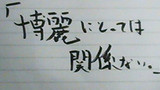 「博麗にとっては
関係ない。